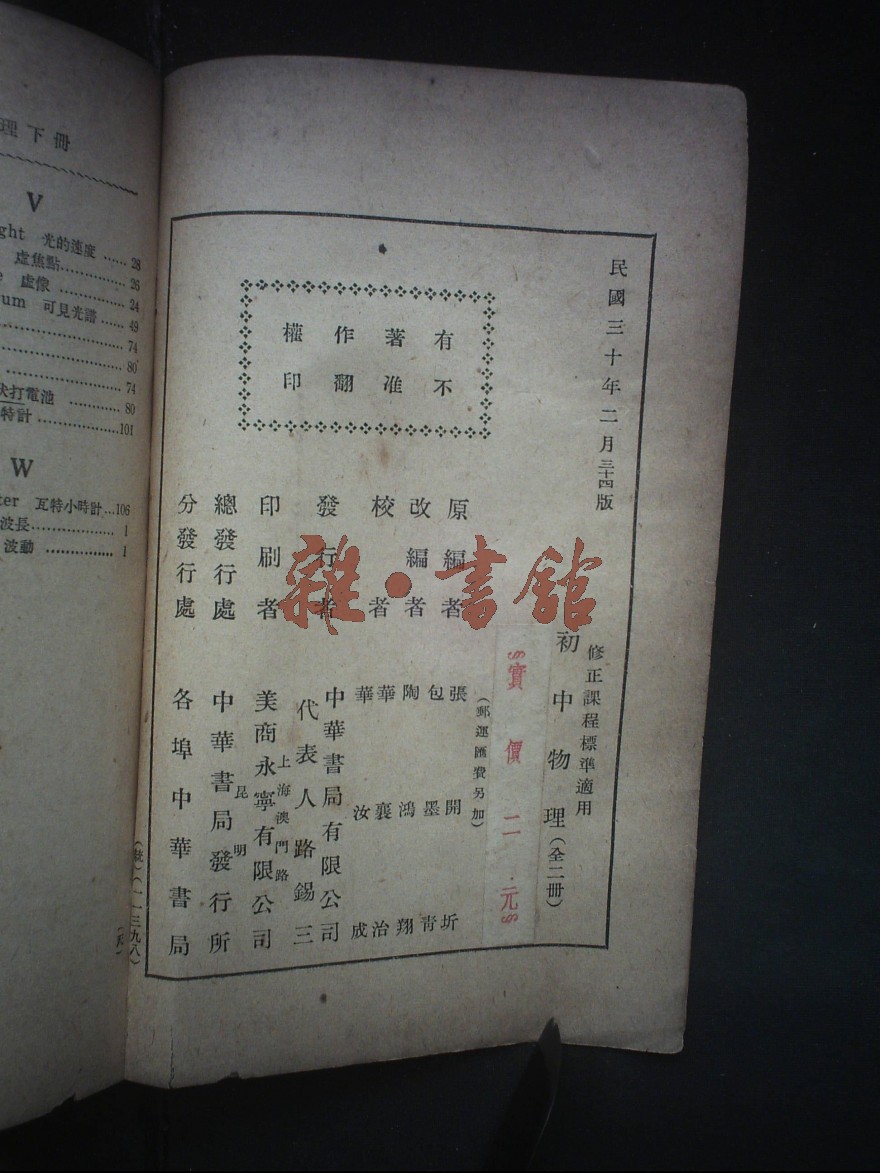 民國三十年二月三十四版
修正課程標準適用
初中物理(全二冊)
§實價二元§
(郵運匯費另加)
有著作權
不准翻印
原編者 張開圻
改編者 包墨青
陶鴻翔
校者 華襄治
華汝成
發行者 中華書局有限公司
代表人路錫三
印刷者 上海澳門路
美商永寧有限公司
總發行處 昆明
中華書局發行所
分發行處 各埠中華書局
(一一三九八)
雜·書館
理下冊
V
ght 光的速度 ...... 28
虛焦點 ............ 26
虛像 ............ 24
um 可見光譜 ...... 49
............ 74
............ 80
............ 74
打電池 ............ 80
特計 ............ 101
W
ter 瓦特小時計 ... 106
波長 ............ 1
波動 ............ 1